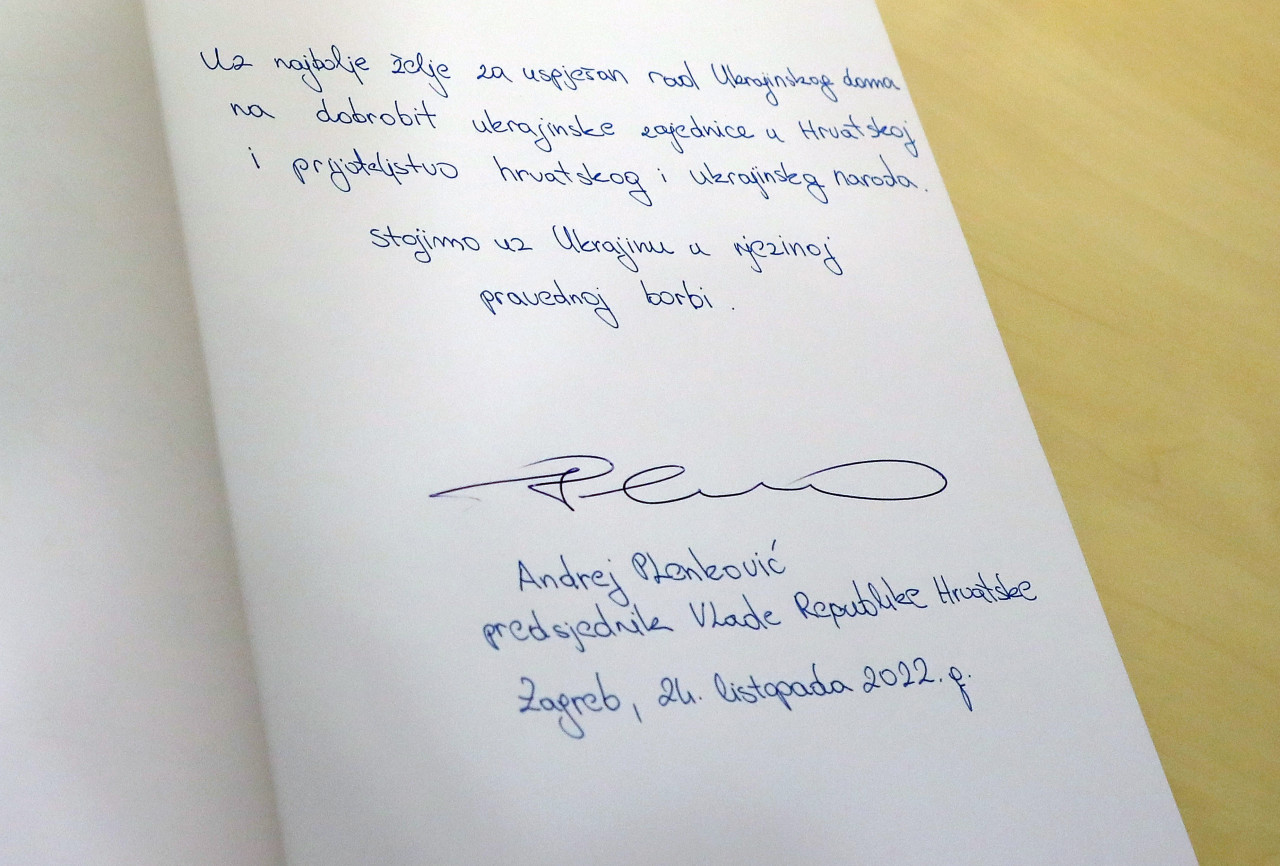 Uz najbolje želje za uspješan rad Ukrajinskog doma
na dobrobit ukrajinske zajednice u Hrvatskoj
i prijateljstvo hrvatskog i ukrajinskog naroda.
Stojimo uz Ukrajinu u njezinoj
pravednoj borbi.
Andrej Plenković
predsjednik Vlade Republike Hrvatske
Zagreb, 24. listopada 2022. g.